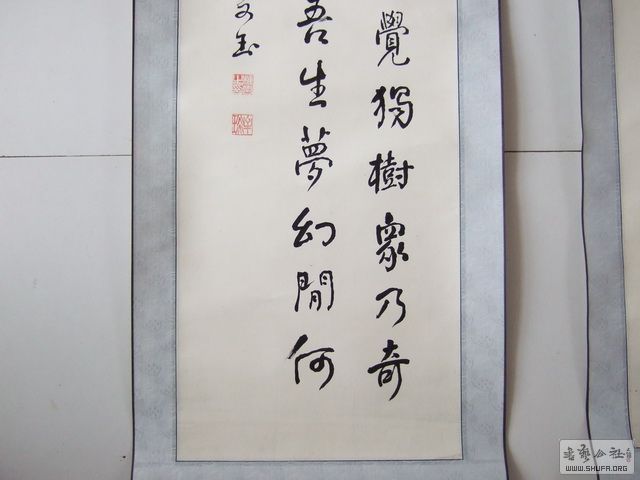 覺獨樹眾乃奇
吾生夢幻閒何
書藝公社
WWW.SHUFA.ORG